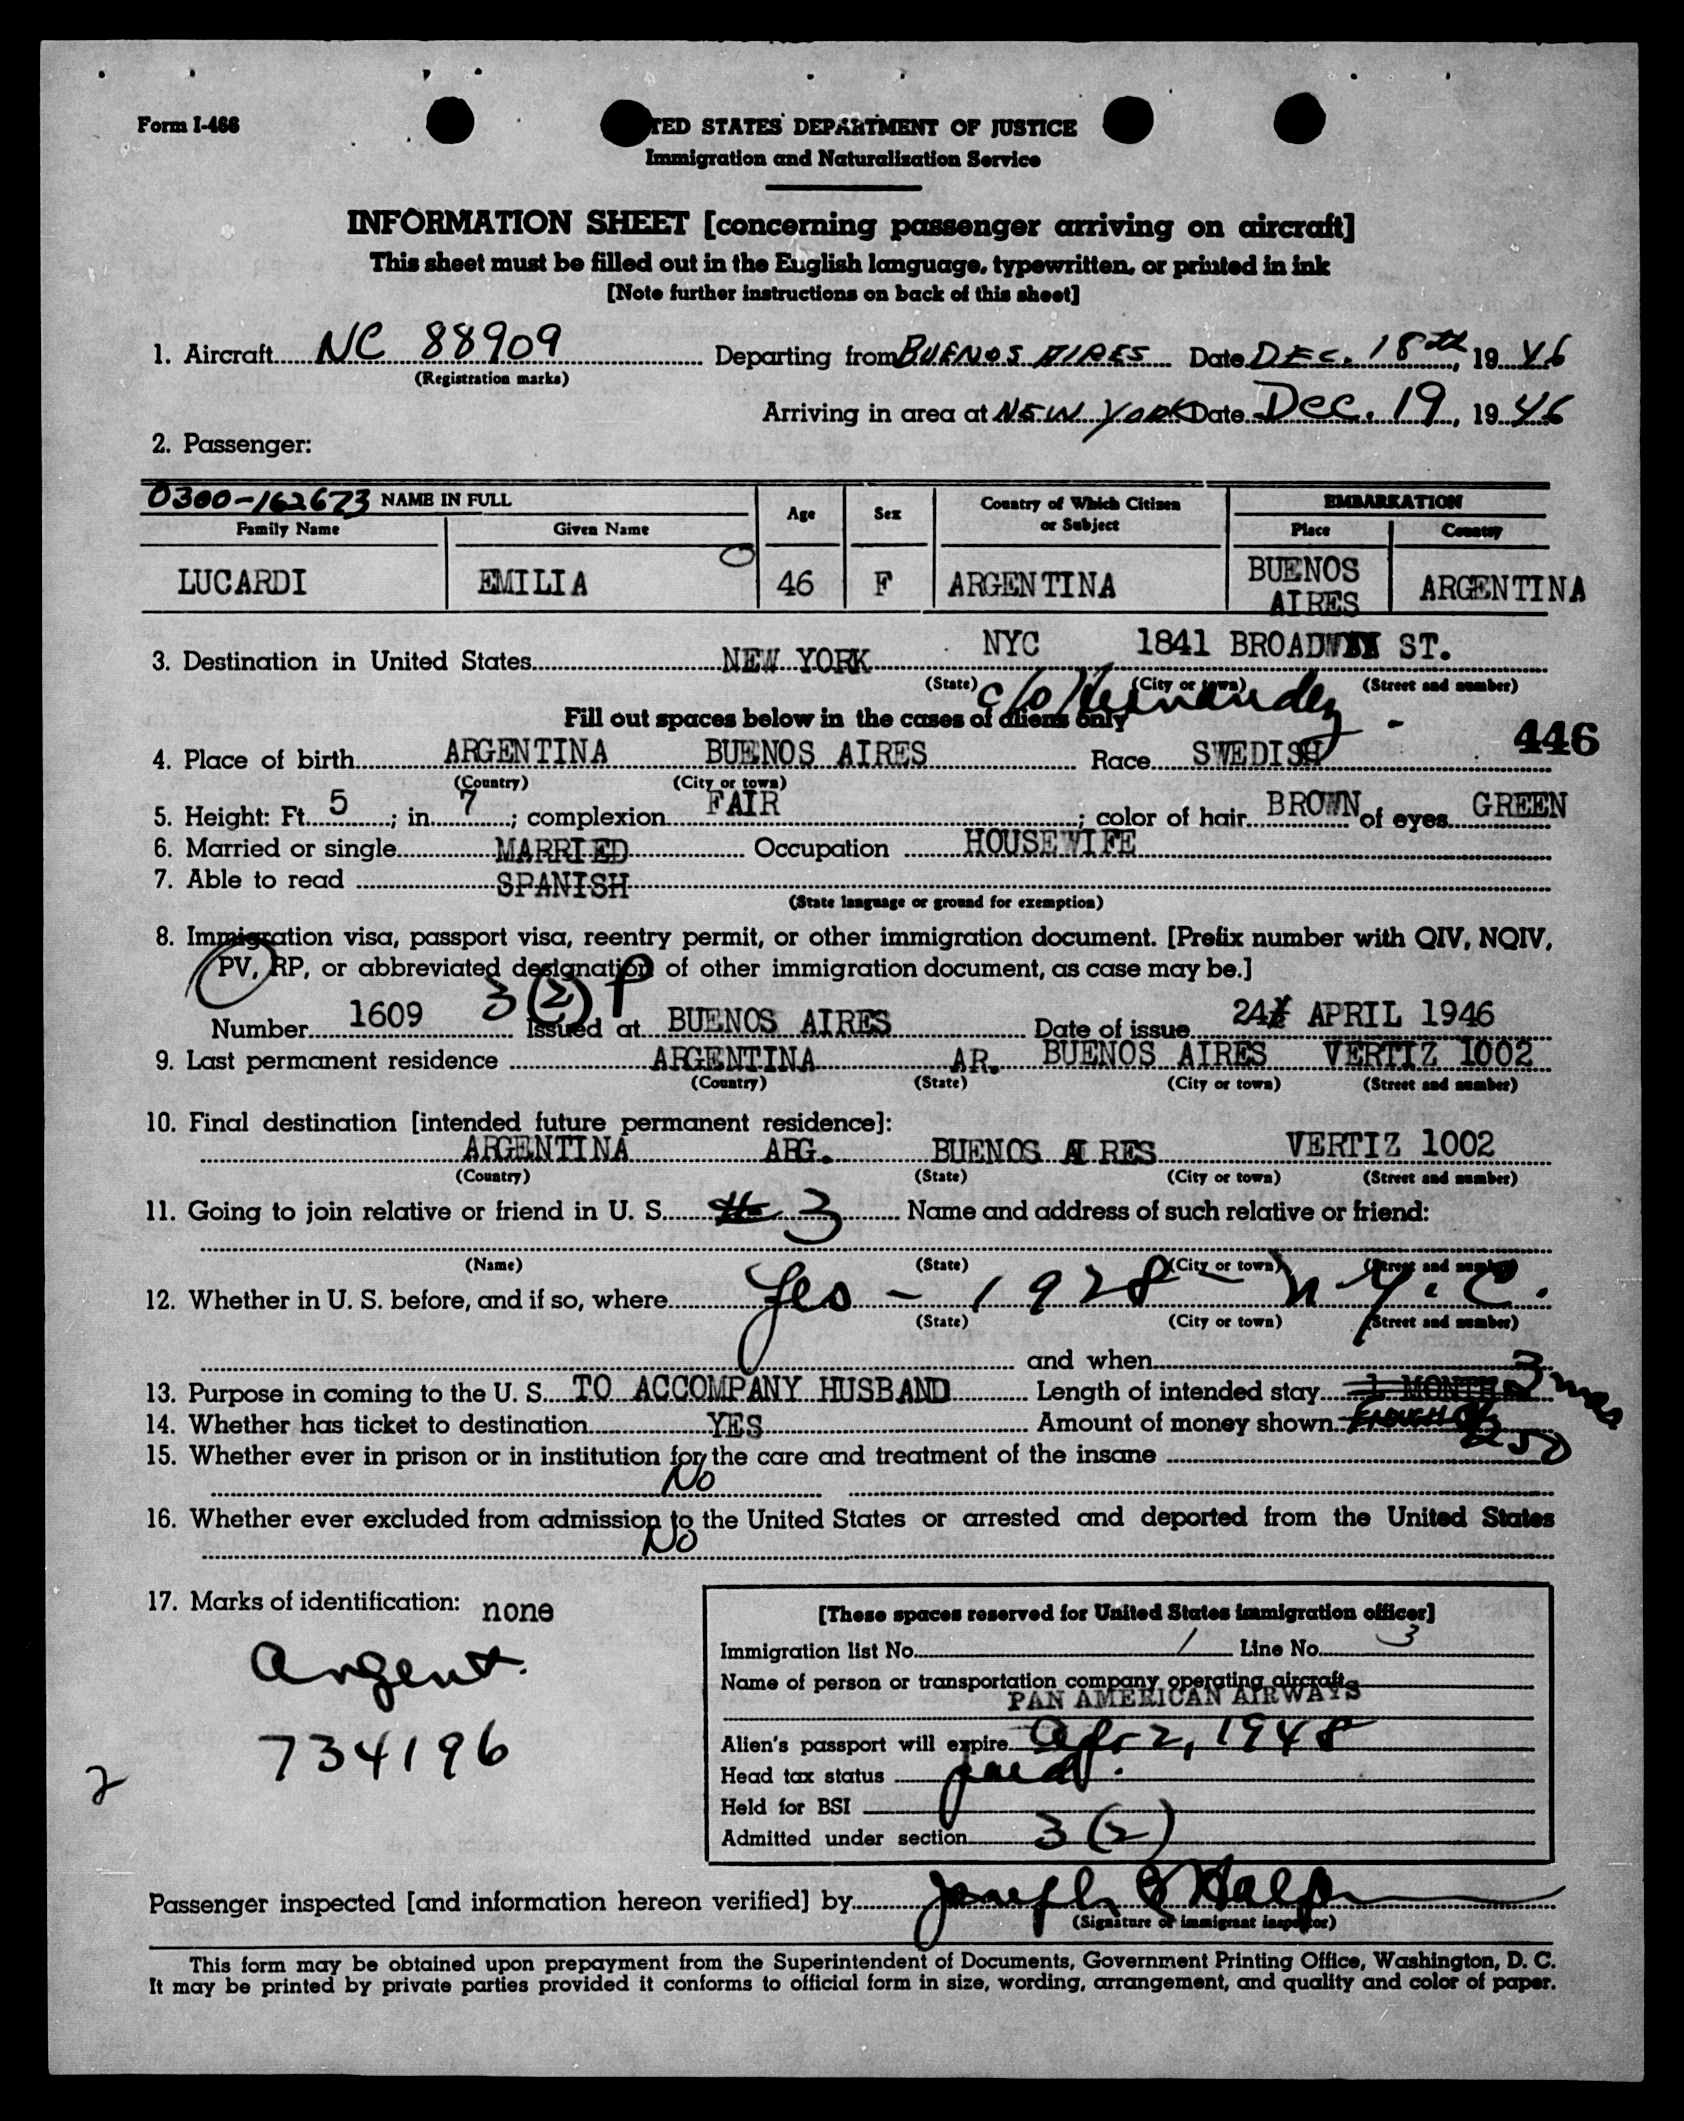 Form I-466
TED STATES DEPARTMENT OF JUSTICE
Immigration and Naturalization Service
INFORMATION SHEET [concerning passenger arriving on aircraft]
This sheet must be filled out in the English language, typewritten, or printed in ink
[Note further instructions on back of this sheet]
1. Aircraft NC 88909 Departing from BUENOS AIRES Date DEC. 18th, 19 46
(Registration marks)
Arriving in area at NEW YORK Date Dec. 19, 19 46
2. Passenger:
0300-162673 NAME IN FULL Age Sex Country of Which Citizen or Subject EMBARKATION
Family Name Given Name Place Country
LUCARDI EMILIA 46 F ARGENTINA BUENOS AIRES ARGENTINA
3. Destination in United States NEW YORK NYC 1841 BROADW ST.
(State) (City or town) (Street and number)
c/o Hernandez
Fill out spaces below in the cases of aliens only
446
4. Place of birth ARGENTINA BUENOS AIRES Race SWEDISH
(Country) (City or town)
5. Height: Ft. 5; in. 7; complexion FAIR; color of hair BROWN of eyes GREEN
6. Married or single MARRIED Occupation HOUSEWIFE
7. Able to read SPANISH
(State language or ground for exemption)
8. Immigration visa, passport visa, reentry permit, or other immigration document. [Prefix number with QIV, NQIV,
PV, RP, or abbreviated designation of other immigration document, as case may be.]
3(2) P
Number 1609 Issued at BUENOS AIRES Date of issue 24 APRIL 1946
9. Last permanent residence ARGENTINA AR. BUENOS AIRES VERTIZ 1002
(Country) (State) (City or town) (Street and number)
10. Final destination [intended future permanent residence]:
ARGENTINA ARG. BUENOS AI RES VERTIZ 1002
(Country) (State) (City or town) (Street and number)
11. Going to join relative or friend in U. S. 3 Name and address of such relative or friend:
(Name) (State) (City or town) (Street and number)
12. Whether in U. S. before, and if so, where Yes - 1928 - N.Y.C.
(State) (City or town) (Street and number)
and when
13. Purpose in coming to the U. S. TO ACCOMPANY HUSBAND Length of intended stay 1 MONTH 3 mos
14. Whether has ticket to destination YES Amount of money shown 250
15. Whether ever in prison or in institution for the care and treatment of the insane
No
16. Whether ever excluded from admission to the United States or arrested and deported from the United States
No
17. Marks of identification: none
Argent.
734196
2
[These spaces reserved for United States immigration officer]
Immigration list No. 1 Line No. 3
Name of person or transportation company operating aircraft
PAN AMERICAN AIRWAYS
Alien's passport will expire Apr 2, 1948
Head tax status paid.
Held for BSI
Admitted under section 3(2)
Passenger inspected [and information hereon verified] by Joseph
(Signature of immigrant inspector)
This form may be obtained upon prepayment from the Superintendent of Documents, Government Printing Office, Washington, D. C.
It may be printed by private parties provided it conforms to official form in size, wording, arrangement, and quality and color of paper.